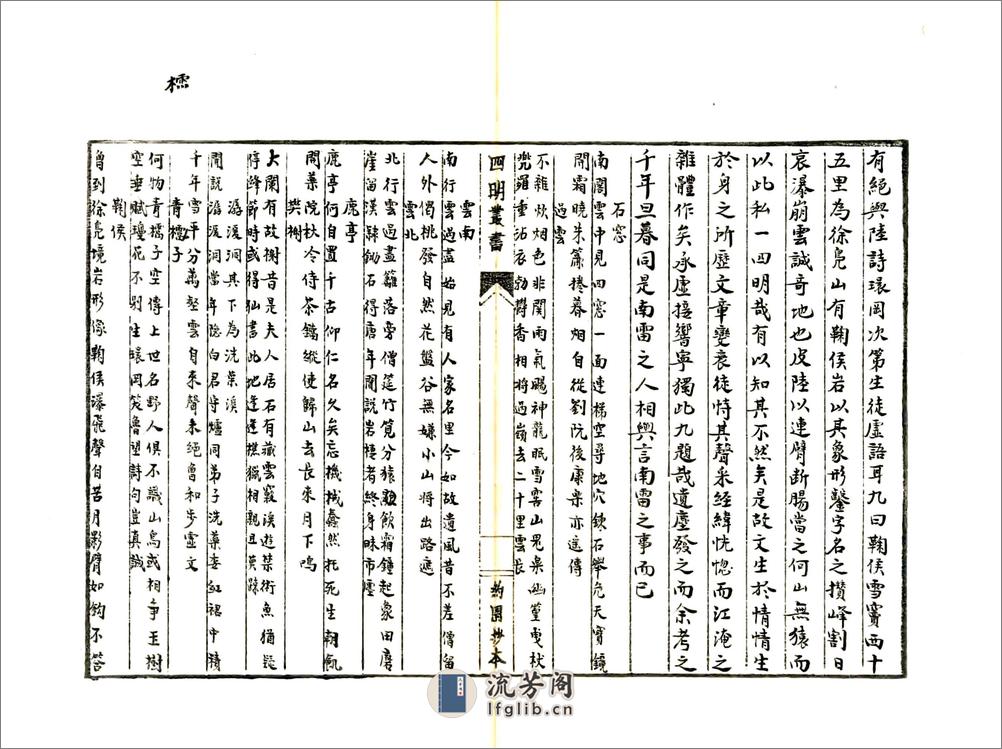 有絕與陸詩環岡次第生徒虛語耳九曰鞠侯雪竇西十
五里為徐鳧山有鞠侯岩以其象形鑿字名之攢峰割日
哀瀑崩雲誠奇地也皮陸以連臂斷腸當之何山無猿而
以此私一四明哉有以知其不然矣是故文生於情情生
於身之所歷文章變衰徒恃其聲采經緯恍惚而江淹之
雜體作矣承虛接響寧獨此九題哉遺塵發之而余考之
千年旦暮同是南雷之人相與言南雷之事而已
石窓
南闕雲中見四窓一面連梯空尋地穴欹石舉危天寶鏡
開霜曉朱簾捲暮烟自從劉阮後康樂亦遙傳
過雲
不雜炊烟色非關雨氣颺神龍眠雪窖山鬼樂幽篁曳杖
兜羅重沾衣勃鬱香相將過嶺去二十里雲長
四明叢書
約園抄本
雲南
南行雲過盡始見有人家名里今如故遺風昔不差僧留
人外偈桃發自然花盤谷無嫌小山將出路遮
雲北
北行雲過盡籬落旁僧筵竹筧分猿飲霜鐘起象田磨
崖留漢隸鋤石得唐年聞說岩棲者終身昧市廛
鹿亭
鹿亭何自置千古仰仁名久矣忘機械蠢然托死生朝飢
聞藥院秋冷侍茶鐺縱使歸山去長來月下鳴
樊榭
大闌有故榭昔是夫人居石有藏雲竅溪遊禁術魚猶疑
停絳節時或得仙書此地逢樵獵相親且莫躲
潺湲洞其下為洗藥溪
聞說潺湲洞當年隱白君守爐同弟子洗藥委紅裙中積
千年雪平分萬壑雲自來聲未絕魯和步虛文
青櫺子
何物青櫺子空傳上世名野人俱不識山鳥或相爭玉樹
空垂賦瓊花不別生環岡笑魯望對句豈真誠
鞠侯
曾到徐鳧境岩形像鞠侯瀑飛聲自苦月影臂如鈎不答
櫺
流芳閣
lfglib.cn